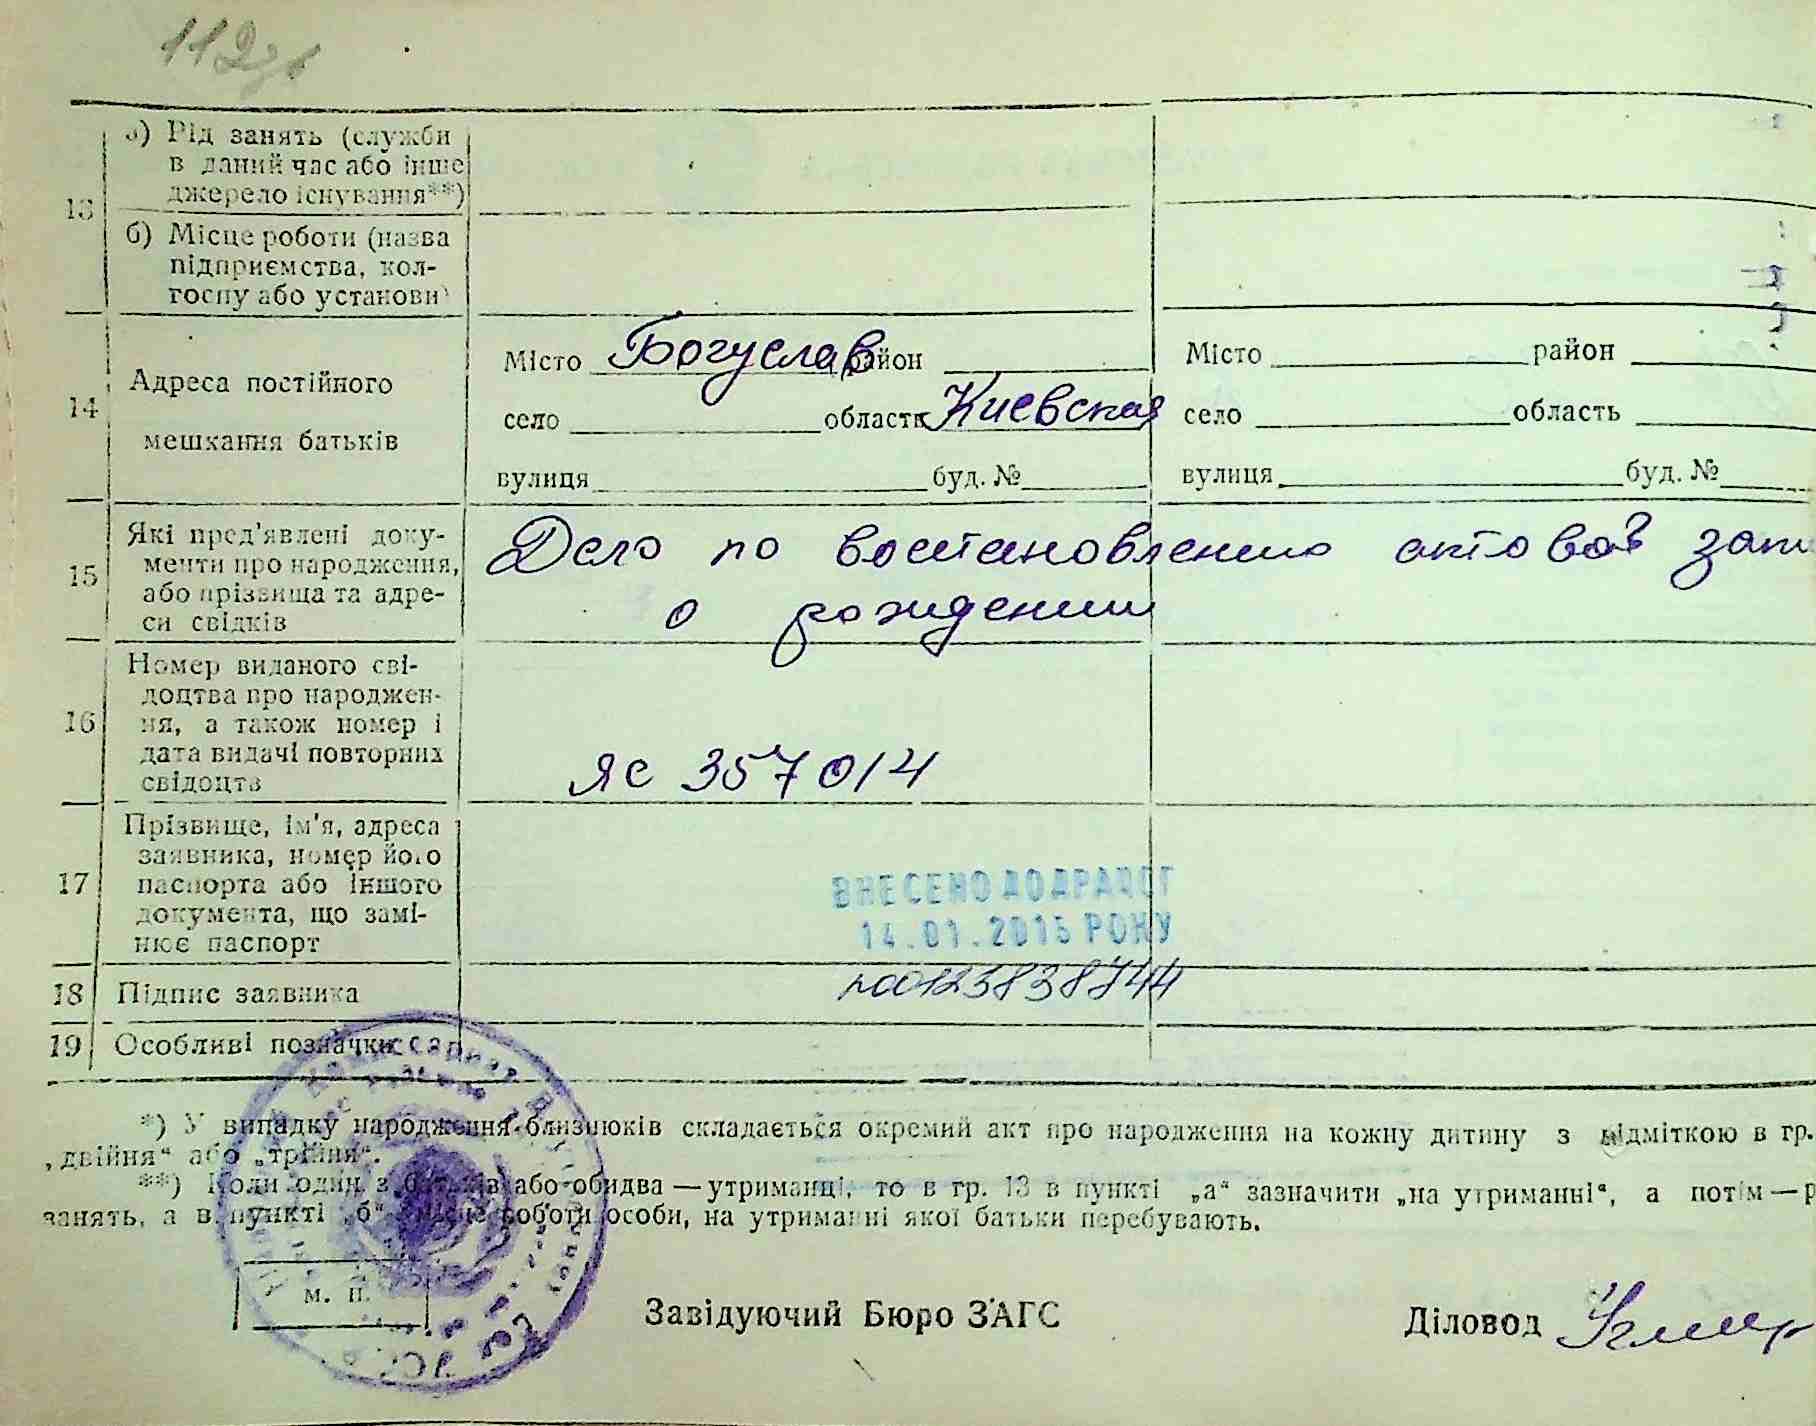 112зв
13 а) Рід занять (служби
в даний час або інше
джерело існування**)
б) Місце роботи (назва
підприємства, кол-
госпу або установи)
14 Адреса постійного
мешкання батьків
Місто Богуслав район
село область Киевская
вулиця буд. №
Місто район
село область
вулиця буд. №
15 Які пред'явлені доку-
менти про народження,
або прізвища та адре-
си свідків
Дело по востановлению актовой запи
о рождении
16 Номер виданого сві-
доцтва про народжен-
ня, а також номер і
дата видачі повторних
свідоцтв
ЯС 357014
17 Прізвище, ім'я, адреса
заявника, номер його
паспорта або іншого
документа, що замі-
нює паспорт
ВНЕСЕНО ДО ДРАЦСГ
14.01.2015 РОКУ
18 Підпис заявника
00123838744
19 Особливі позначки
*) У випадку народження близнюків складається окремий акт про народження на кожну дитину з відміткою в гр.
„двійня“ або „трійня“.
**) Коли один з батьків або обидва — утриманці, то в гр. 13 в пункті „а“ зазначити „на утриманні“, а потім — р
занять, а в пункті „б“ місце роботи особи, на утриманні якої батьки перебувають.
м. п.
Завідуючий Бюро ЗАГС
Діловод